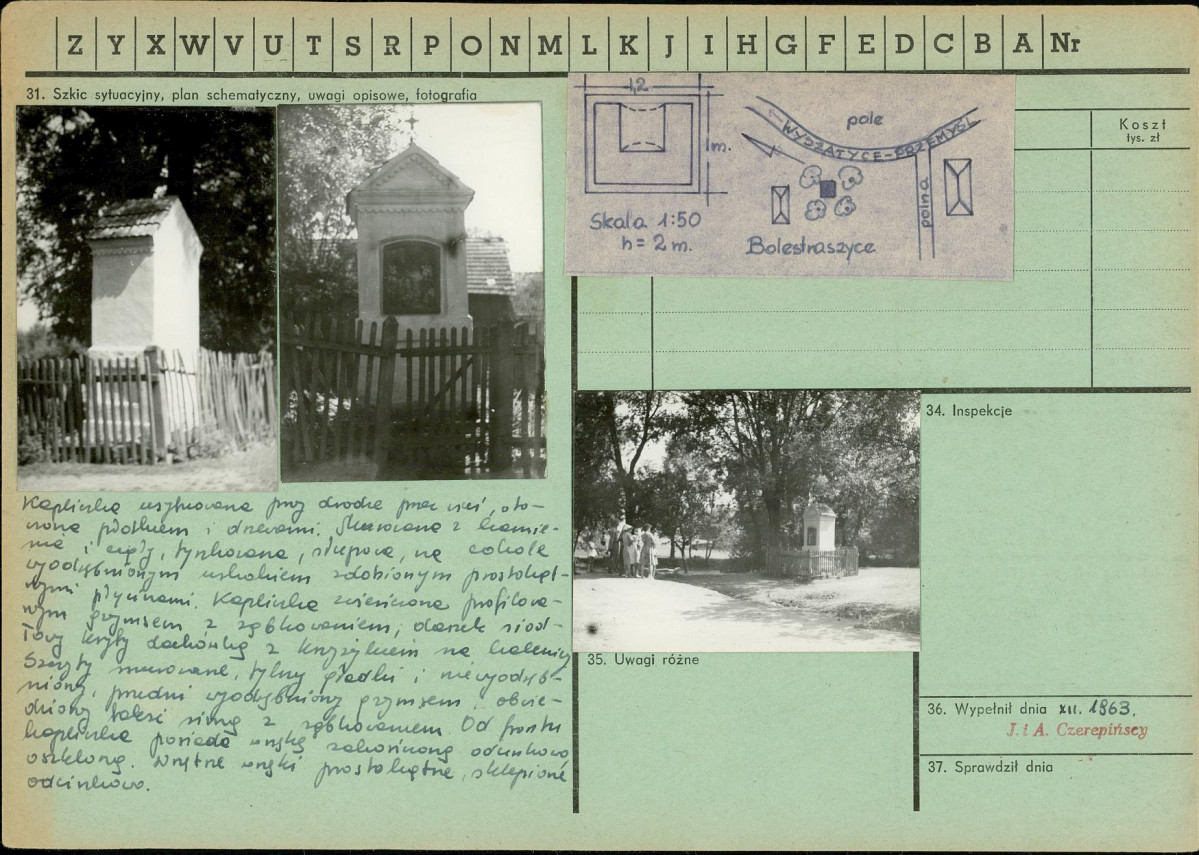 Z Y X W V U T S R P O N M L K J I H G F E D C B A Nr
31. Szkic sytuacyjny, plan schematyczny, uwagi opisowe, fotografia
Koszt
tys. zł
1,2
1m.
Skala 1:50
h = 2 m.
pole
WYSZATYCE-PRZEMYŚL
polna
Bolestraszyce
Kapliczka usytuowana przy drodze przez wieś, oto-
czona płotkiem i drzewami. Murowana z kamie-
nia i cegły, tynkowana, słupowa, na cokole
wyodrębnionym uskokiem zdobionym prostokąt-
nymi płycinami. Kapliczka zwieńczona profilowa-
nym gzymsem z ząbkowaniem, daszek siod-
łowy kryty dachówką z krzyżykiem na kalenicy
Szczyty murowane, tylny gładki i niewyodręb-
niony, przedni wyodrębniony gzymsem, obie-
gzymsem z ząbkowaniem. Od frontu
kapliczka posiada wnękę zakończoną odcinkowo
oszkloną. Wnętrze wnęki prostokątne, sklepione
odcinkowo.
34. Inspekcje
35. Uwagi różne
36. Wypełnił dnia XII. 1963.
J. i A. Czerepińscy
37. Sprawdził dnia